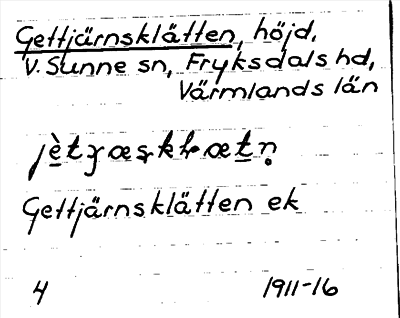 Gettjärnsklätten, höjd,
V. Sunne sn, Fryksdals hd,
Värmlands län
Gettjärnsklätten ek
4 1911-16